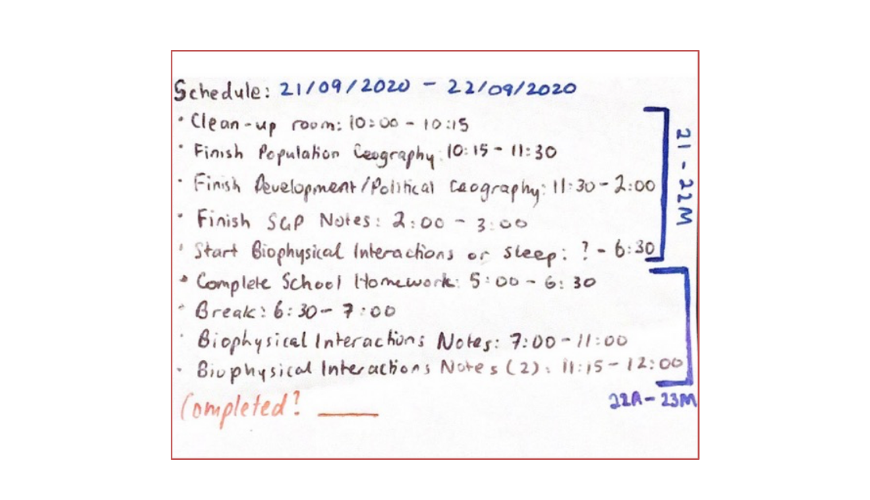 Schedule: 21/09/2020 - 22/09/2020
• Clean-up room: 10:00 - 10:15
• Finish Population Geography: 10:15 - 11:30
• Finish Development/Political Geography: 11:30 - 2:00
• Finish SGP Notes: 2:00 - 3:00
• Start Biophysical Interactions or sleep: ? - 6:30
21 - 22M
• Complete School Homework: 5:00 - 6:30
• Break: 6:30 - 7:00
• Biophysical Interactions Notes: 7:00 - 11:00
• Biophysical Interactions Notes (2): 11:15 - 12:00
22A - 23M
Completed? ____